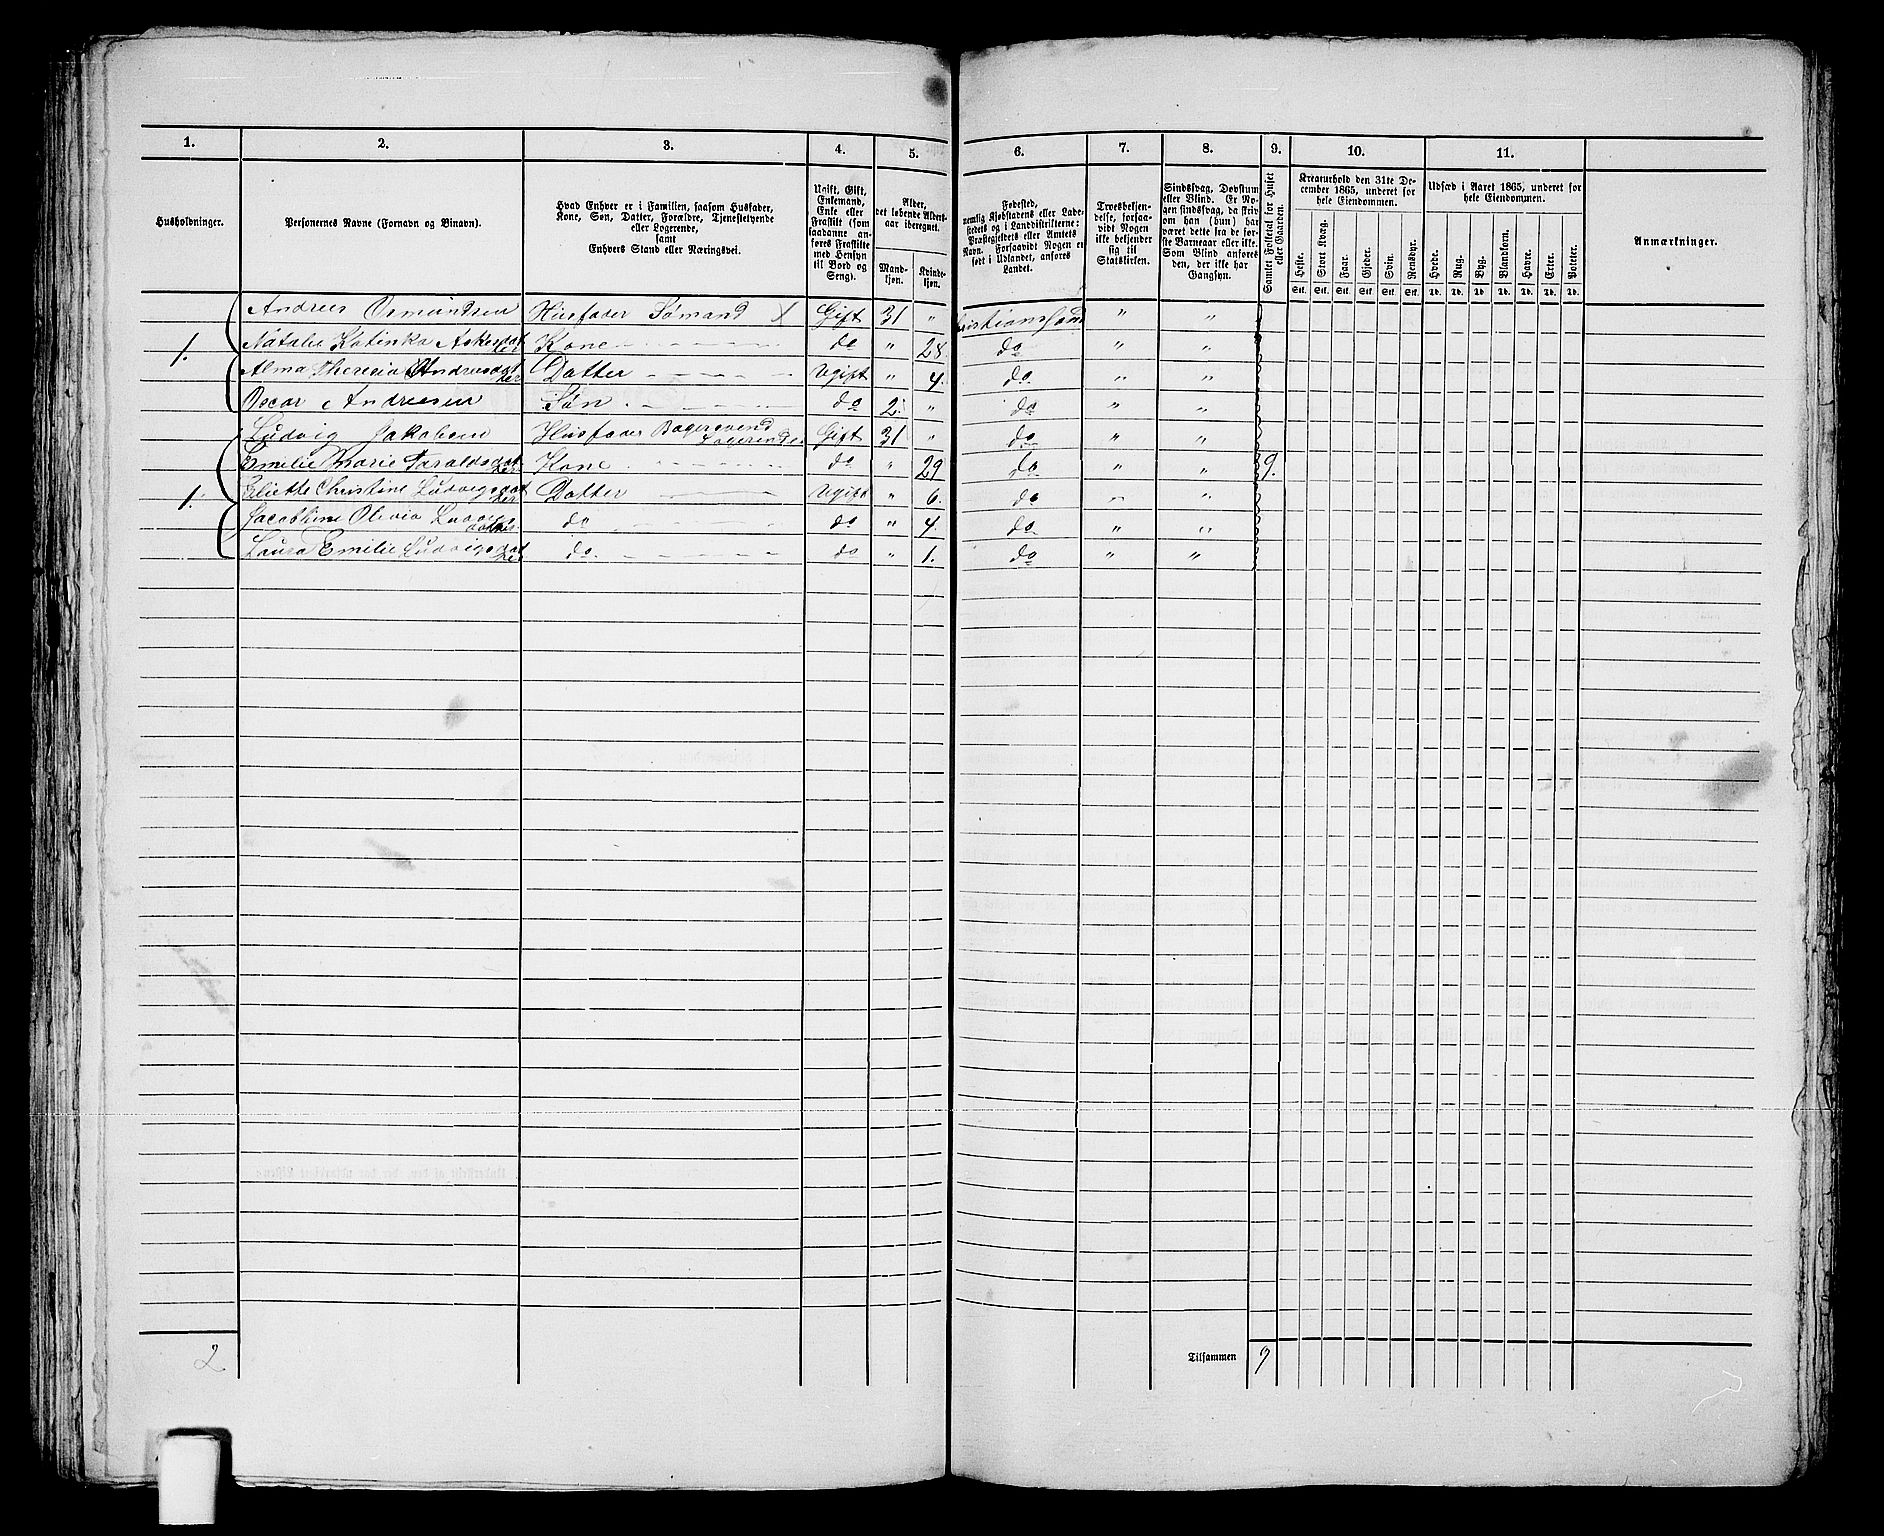 1. 2. 3. 4. 5. 6. 7. 8. 9. 10. 11.
Husholdninger.
Personernes Navne (Fornavn og Binavn).
Hvad Enhver er i Familien, saasom Husfader,
Kone, Søn, Datter, Forældre, Tjenestetyende
eller Logerende,
samt
Enhvers Stand eller Næringsvei.
Ugift, Gift,
Enkemand,
Enke eller
Fraskilt (som
saadanne an-
føres Fraskilte
med Hensyn
til Bord og
Seng).
Alder,
det løbende Alders-
aar iberegnet.
Mand-
kjøn.
Kvinde-
kjøn.
Fødested,
nemlig Kjøbstadens eller Lade-
stedets og i Landdistrikterne:
Præstegjeldets eller Amtets
Navn. Forsaavidt Nogen er
født i Udlandet, anføres
Landet.
Troesbekjen-
delse, forsaa-
vidt Nogen
ikke bekjender
sig til
Statskirken.
Sindssvag, Døvstum
eller Blind. Er No-
gen sindssvag, da skriv
om han (hun) har
været dette fra de før-
ste Barneaar eller ikke.
Som Blind anføres
den, der ikke har
Gangsyn.
Samlet Folketal for Huset
eller Gaarden.
Kreaturhold den 31te De-
cember 1865, underet for
hele Eiendommen.
Heste. Stort Kvæg. Faar. Gjeder. Svin. Rensdyr.
Stk. Stk. Stk. Stk. Stk. Stk.
Udsæd i Aaret 1865, underet for
hele Eiendommen.
Hvede. Rug. Byg. Blandkorn. Havre. Erter. Poteter.
Td. Td. Td. Td. Td. Td. Td.
Anmærkninger.
Andreas Osmundsen Husfader Sømand X Gift 31 " Christianssand " "
1. Natalie Katinka Askesdatter Kone do " 28. do " "
Alma Theresia Andreasdatter Datter Ugift " 4. do " "
Oscar Andreesen Søn do 2. " do " "
Ludvig Jakobsen Husfader Bagersvend Logerende Gift 31 " do " "
Emilie Marie Taraldsdatter Kone do " 29 do " " 9.
1. Eliette Christine Ludvigsdatter Datter Ugift " 6. do " "
Jacobine Olivia Ludvigsdatter do do " 4. do " "
Laura Emilie Ludvigsdatter do. do " 1. do " "
2 Tilsammen 9